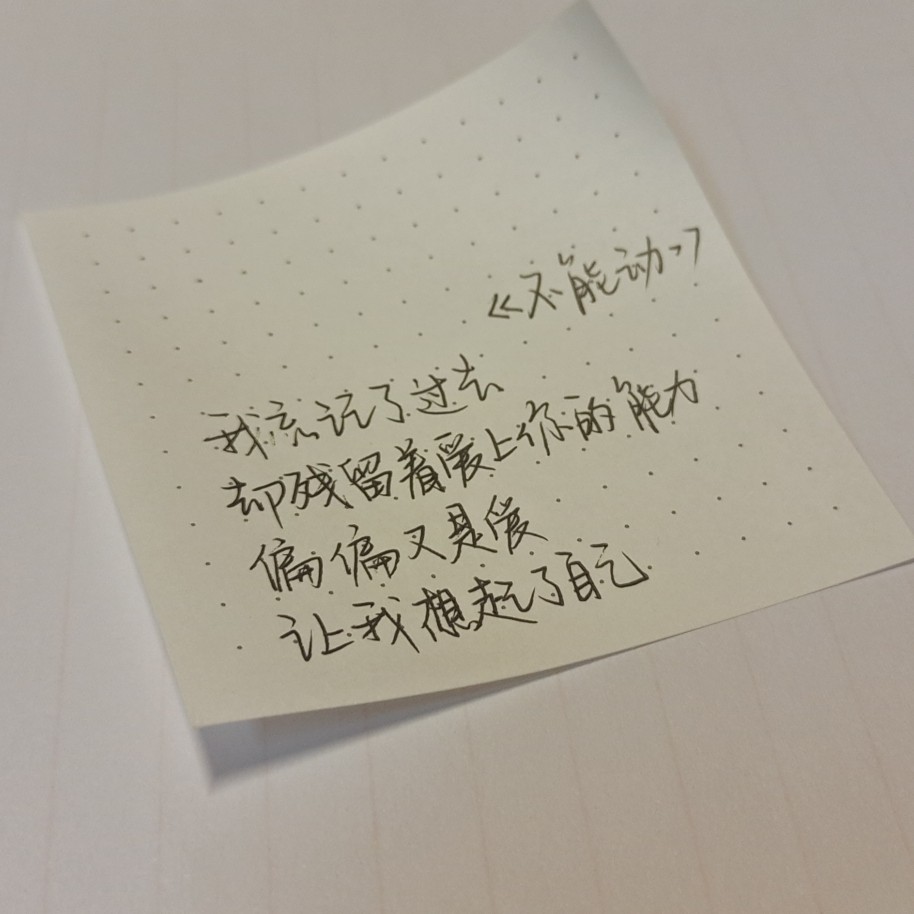 《不能动》
我忘记了过去
却残留着爱上你的能力
偏偏又是爱
让我想起了自己